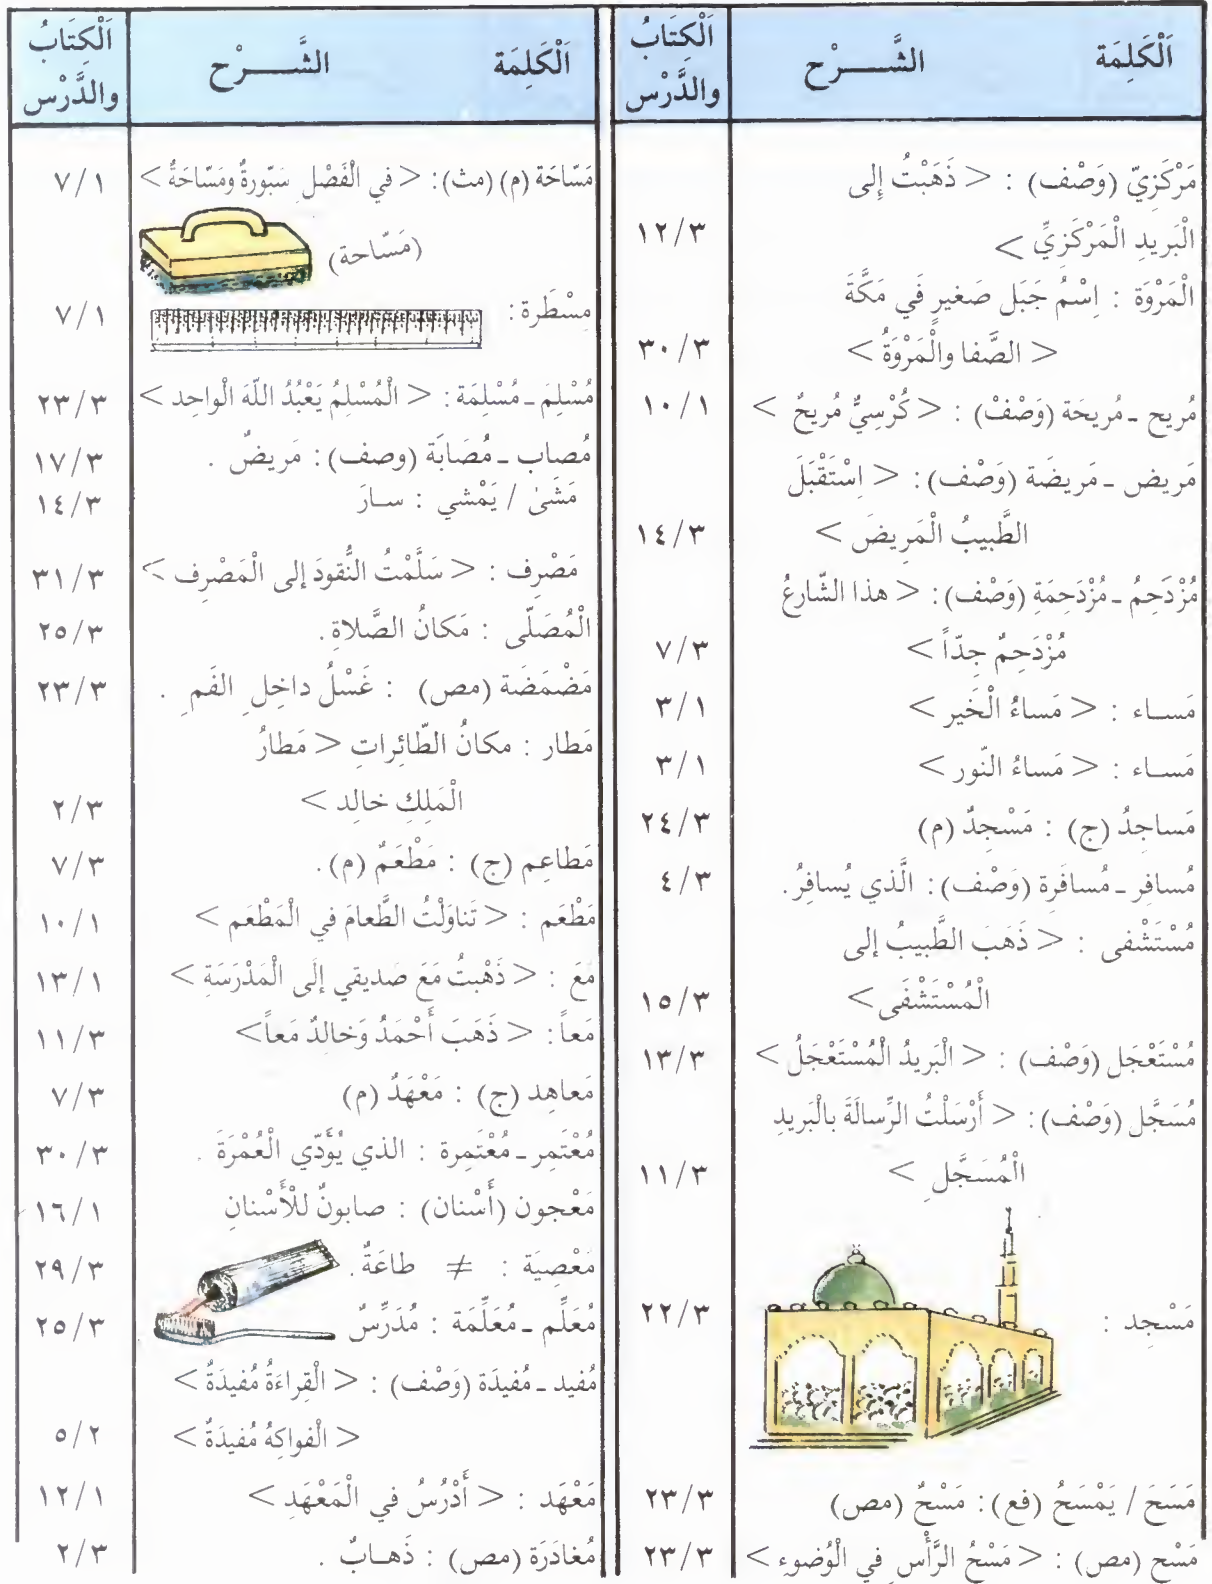 اَلْكَلِمَة الشَّـــرْح اَلْكِتَابُ والدَّرْس
مَرْكَزِيّ (وَصْف) : < ذَهَبْتُ إِلى
الْبَريدِ الْمَرْكَزِيِّ > ١٢/٣
الْمَرْوَة : اِسْمُ جَبَل صَغيرٍ فَي مَكَّةَ
< الصَّفا والْمَرْوَةُ > ٣٠/٣
مُريح ـ مُريحَة (وَصْفْ) : < كُرْسِيٌّ مُريحٌ > ١٠/١
مَريض ـ مَريضَة (وَصْف) : < اِسْتَقْبَلَ
الطَّبيبُ الْمَريضَ > ١٤/٣
مُزْدَحِمُ ـ مُزْدَحِمَةِ (وَصْف) : < هذا الشّارعُ
مُزْدَحِمٌ جِدّاً > ٧/٣
مَســاء : < مَساءُ الْخَير > ٣/١
مَســاء : < مَساءُ النّور > ٣/١
مَساجِدُ (ج) : مَسْجِدٌ (م) ٢٤/٣
مُسافِر ـ مُسافَرة (وَصْف) : الَّذي يُسافِرُ . ٤/٣
مُسْتَشْفى : < ذَهَبَ الطَّبيبُ إلى
الْمُسْتَشْفَى > ١٥/٣
مُسْتَعْجَل (وَصْف) : < الْبَريدُ الْمُسْتَعْجَلُ > ١٣/٣
مُسَجَّل (وَصْف) : < أَرْسَلْتُ الرِّسالَةَ بالْبَريدِ
الْمُسَجَّلِ > ١١/٣
مَسْجِد : ٢٢/٣
مَسَحَ / يَمْسَحُ (فع) : مَسْحٌ (مص) ٢٣/٣
مَسْح (مص) : < مَسْحُ الرَّأْسِ في الْوُضوءِ > ٢٣/٣
اَلْكَلِمَة الشَّـــرْح اَلْكِتَابُ والدَّرْس
مَسّاحَة (م) (مث) : < في الْفَصْلِ سَبّورةٌ ومَسّاحَةٌ > ٧/١
(مَسّاحة)
مِسْطَرة : ٧/١
مُسْلِمَ ـ مُسْلِمَة : < الْمُسْلِمُ يَعْبُدُ اللّهَ الْواحِد > ٢٣/٣
مُصاب ـ مُصَابَة (وصف) : مَريضٌ . ١٧/٣
مَشَىٰ / يَمْشي : ســارَ ١٤/٣
مَصْرِف : < سَلَّمْتُ النُّقودَ إلى الْمَصْرِف > ٣١/٣
الْمُصَلّى : مَكانُ الصَّلاةِ . ٢٥/٣
مَضْمَضَة (مص) : غَسْلُ داخِلِ الفَمِ . ٢٣/٣
مَطار : مكانُ الطّائِراتِ < مَطارُ
الْمَلِكِ خالِد > ٢/٣
مَطاعِم (ج) : مَطْعَمٌ (م) . ٧/٣
مَطْعَم : < تَناوَلْتُ الطَّعامَ في الْمَطْعَم > ١٠/١
مَعَ : < ذَهْبتُ مَعَ صَديقي إِلَى الْمَدْرَسَةِ > ١٣/١
مَعاً : < ذَهَبَ أَحْمَدُ وَخالدٌ مَعاً > ١١/٣
مَعاهِد (ج) : مَعْهَدٌ (م) ٧/٣
مُعْتَمِر ـ مُعْتَمِرة : الذي يُؤَدّي الْعُمْرَةَ . ٣٠/٣
مَعْجون (أَسْنان) : صابونٌ للْأَسْنانِ ١٦/١
مَعْصِيَة : ≠ طاعَةٌ . ٢٩/٣
مُعَلِّم ـ مُعَلِّمَة : مُدَرِّسٌ ٢٥/٣
مُفيد ـ مُفيدَة (وَصْف) : < الْقِراءَةُ مُفيدَةٌ >
< الْفواكِهُ مُفيدَةٌ > ٥/٢
مَعْهَد : < أَدْرُسُ في الْمَعْهَدِ > ١٢/١
مُغادَرَة (مص) : ذَهــابٌ . ٢/٣